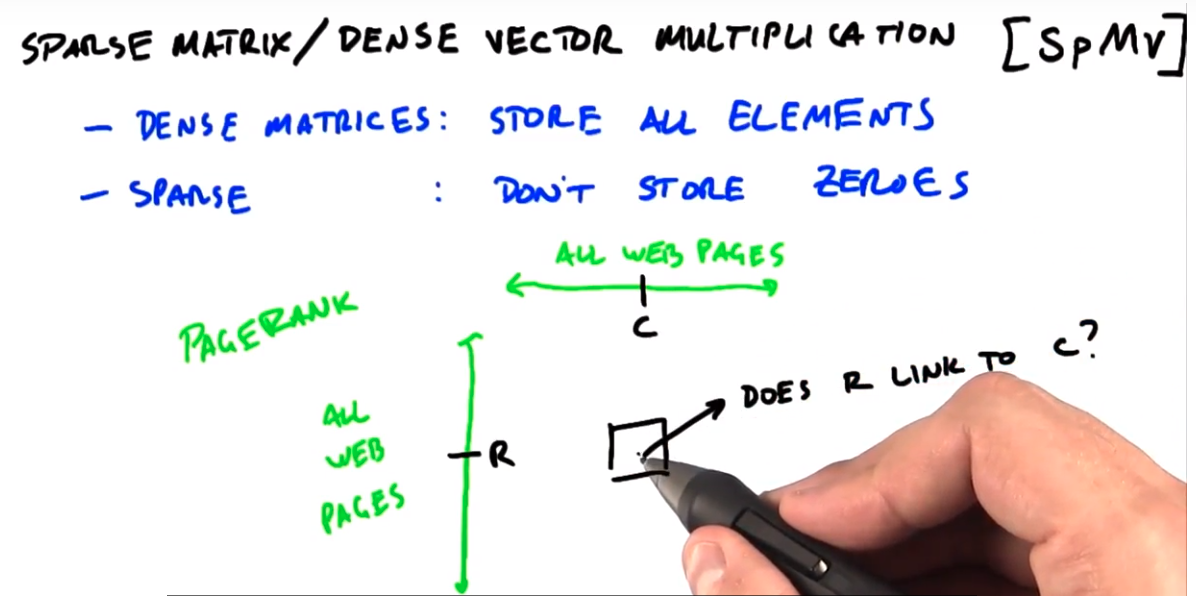 SPARSE MATRIX/DENSE VECTOR MULTIPLICATION [SpMV]
- DENSE MATRICES: STORE ALL ELEMENTS
- SPARSE : DON'T STORE ZEROES
ALL WEB PAGES
C
PAGERANK
DOES R LINK TO C?
ALL
WEB
PAGES
R